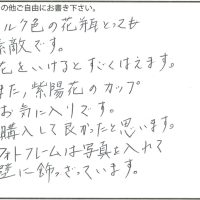 の他ご自由にお書き下さい。
ルク色の花瓶とっても
素敵です。
花をいけるとすごくはえます。
また,紫陽花のカップ
お気に入りです。
購入して良かったと思います。
フォトフレームは写真を入れて
壁に飾っています。